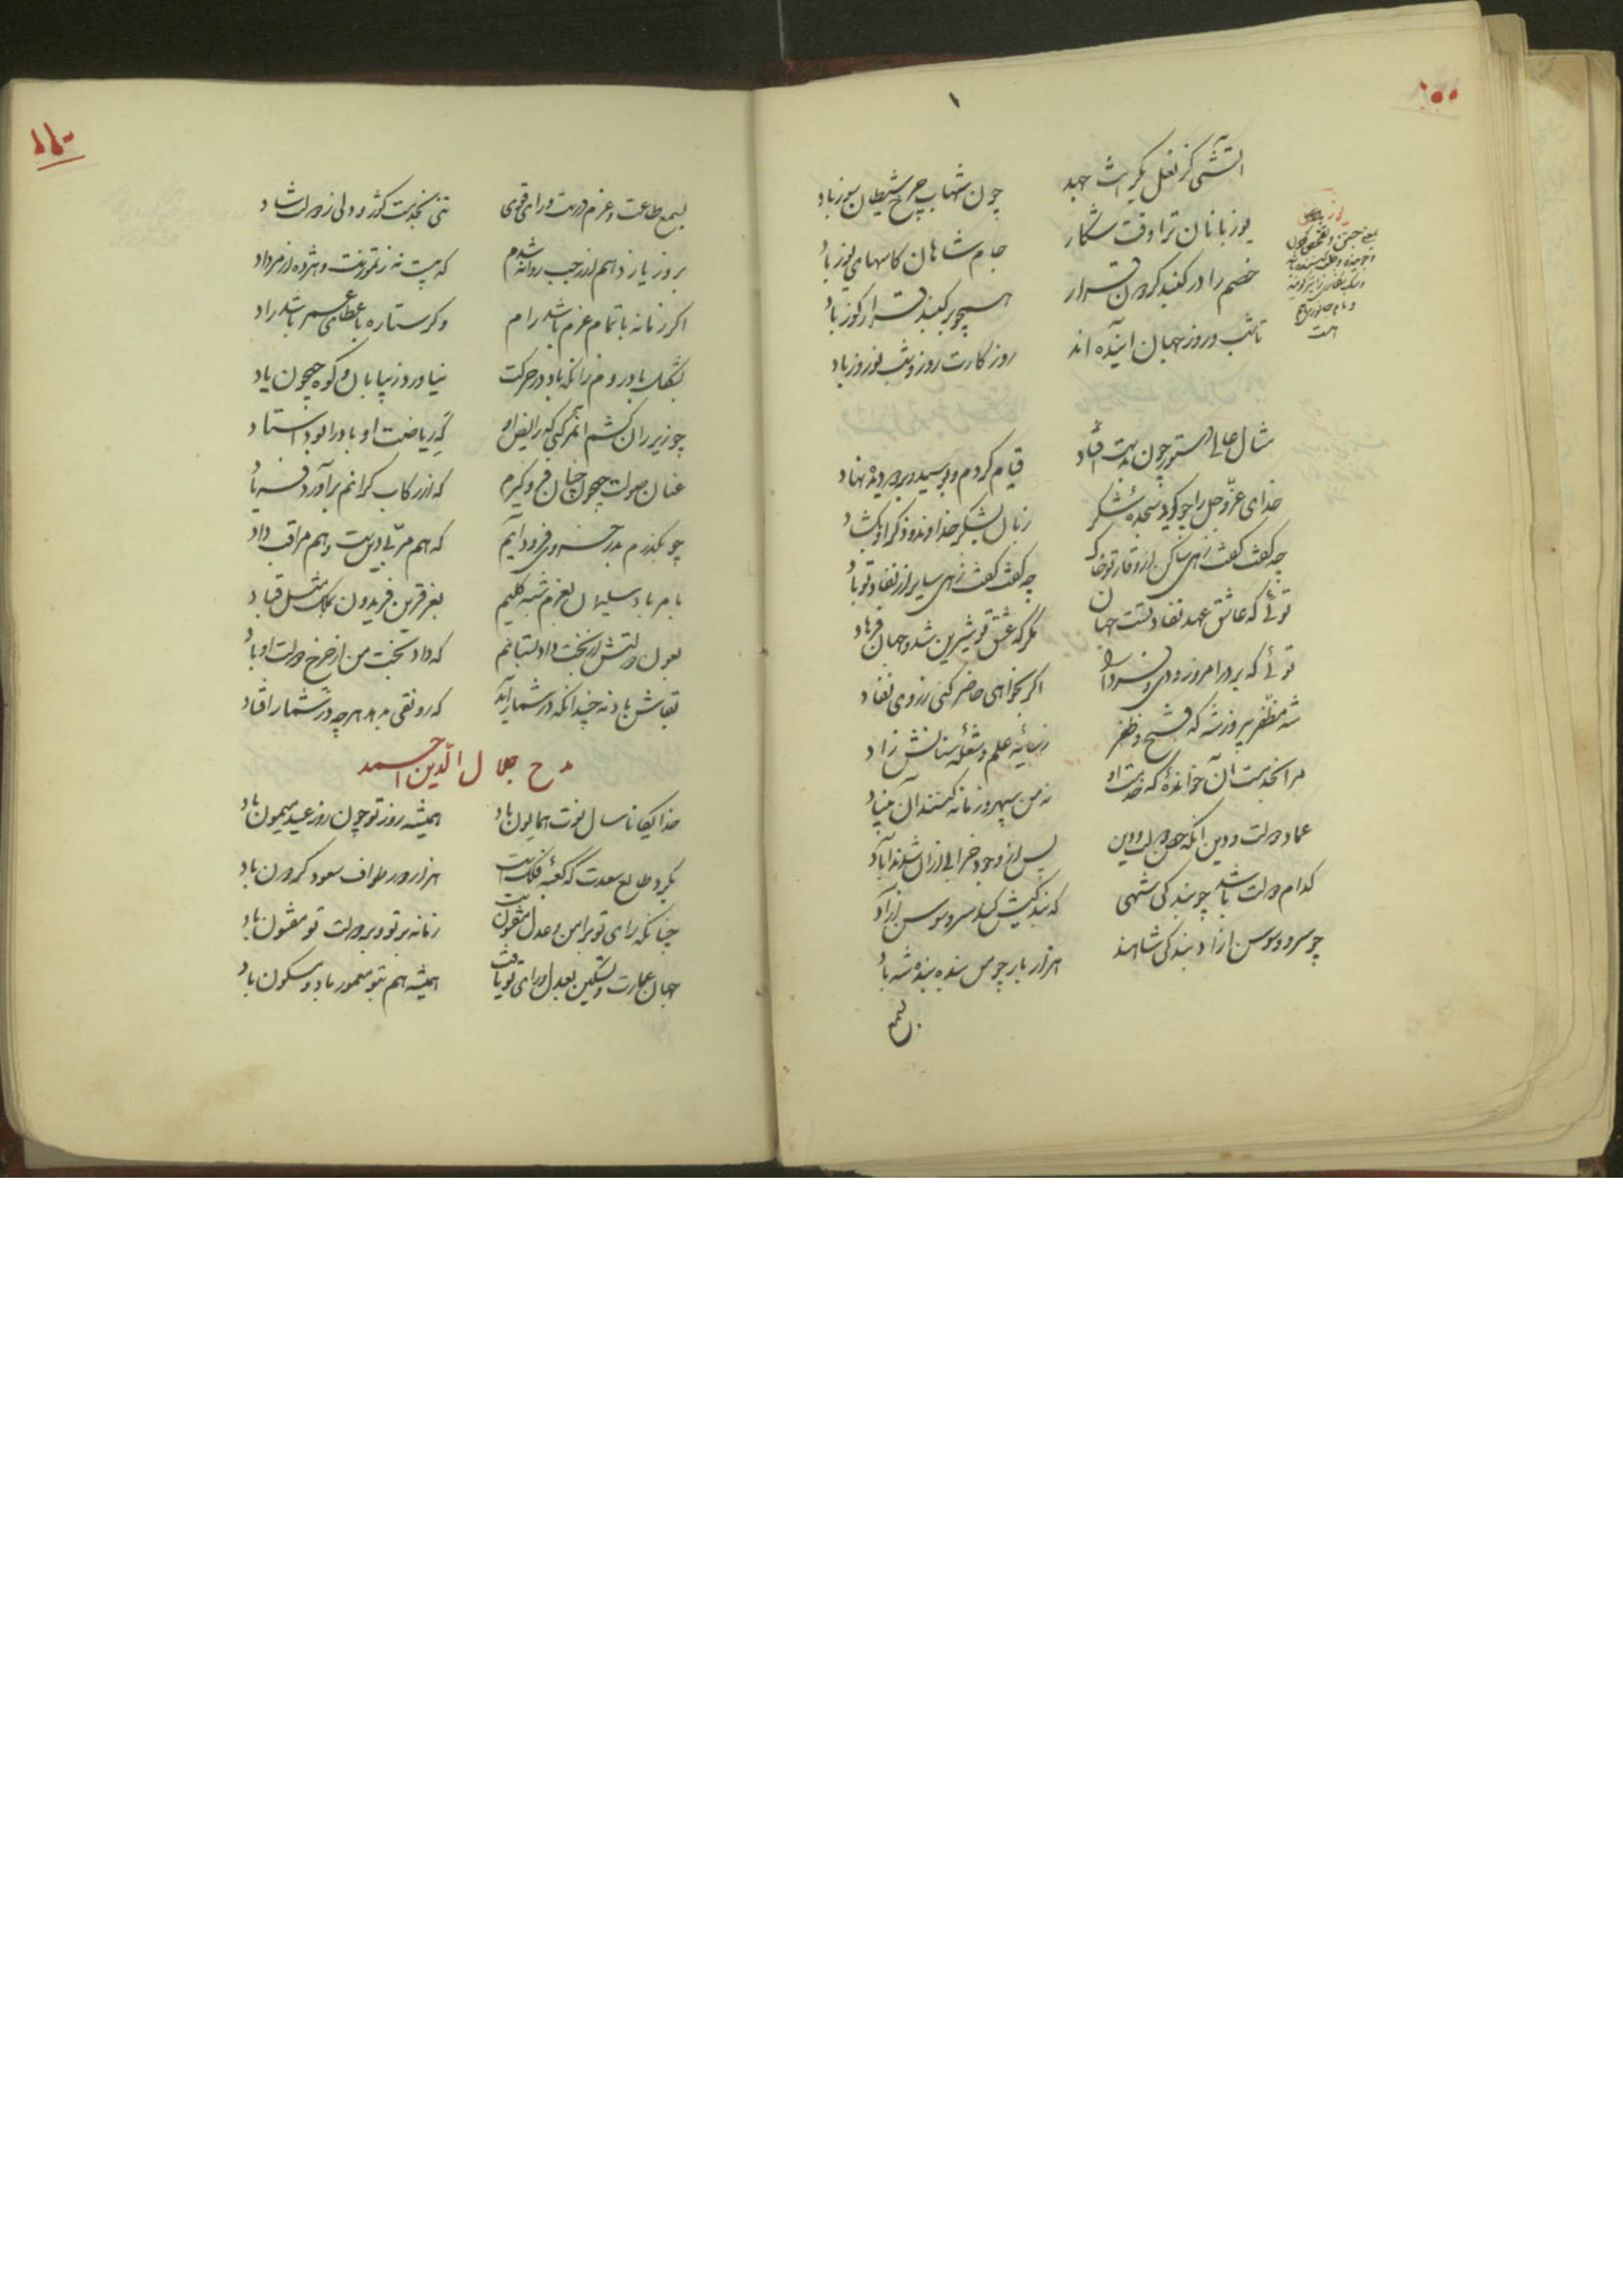 ۱
آتشی کز نعل یکرانت جهد
چون شهاب چرخ شیطان سوز باد
یوزبانان ترا وقت شکار
جام شاهان کاسهای یوز باد
خصم را در گنبد گردون قرار
همچو بر گنبد قرار گوز باد
تا شب و روز جهان آینده اند
روز کارت روز و شب نوروز باد
مثال عالی دستور چون به بنده فتاد
قیام کردم و بوسیدم و بدیده نهاد
خدای عز و جل را چو کردم سجده شکر
زبان بشکر خداوند و ذکر او بکشاد
چه گفت گفت زهی ساکن از وقار تو خاک
چه گفت گفت زهی سایر از نفاذ تو باد
توئی که عاشق عهد نفاذ تست جهان
مگر که عشق تو شیرین شد و جهان فرهاد
توئی که بر در امروز دی و فردا را
اگر بخواهی حاضر کنی ز روی نفاذ
شه مظفر پیروز شه که فتح و ظفر
ز سایه علم و شعله سنانش زاد
مرا بخدمت آن خوانده که خدمت او
نه من سپهر و زمانه کنند از آن بنیاد
عماد دولت و دین آنکه حصن دولت و دین
پس از وجود خرابی از آن شدند آباد
کدام دولت باشد چو بندگی شهی
که بندگیش کند سرو و سوسن آزاد
چو سرو و سوسن آزاد بندگی شاهند
هزار بار چو من بنده بنده شه باد
بسمع طاعت و عزم درست و رای قوی
تنی بخدمت کژ رو ولی ز دولت شاد
بروز یازدهم از رجب روانه شدم
که بیست نه ز تموز است و هژده از مرداد
اگر زمانه با تمام عزم باشد رام
وگر ستاره باعطای عمر باشد راد
بشکل باد روم زانکه باد در حرکت
نیاورد ز بیابان و کوه جیحون یاد
چو زیر ران کشم آنمرکبی که رایض او
که ریاضت او باد را بود استاد
عنان صولت جیحون چنان فرو گیرم
که از رکاب گرانم برآورد فریاد
چو بگذرم بدر خسروی فرود آیم
که هم مربی دین است و هم مراقب داد
بامر باد سلیمان بعزم شبه کلیم
بفر قرین فریدون بملک مثل قباد
بعون دولتش از بخت داد بستانم
که داد بخت من از چرخ دولت او باد
بقاش باد نه چندانکه در شمار آید
که رونقی ندهد هر چه در شمار افتاد
مدح جلال الدین احمد
خدایگانا سال نوت همایون باد
همیشه روز تو چون روز عید میمون باد
بگرد طالع سعدت که کعبه فلکست
هزار دور طواف سعود گردون باد
چنانکه رای تو بر امن و عدل مفتونست
زمانه بر تو و بر دولت تو مفتون باد
جهان عمارت و تسکین بعدل و رای تو یافت
همیشه هم بتو معمور باد و مسکون باد